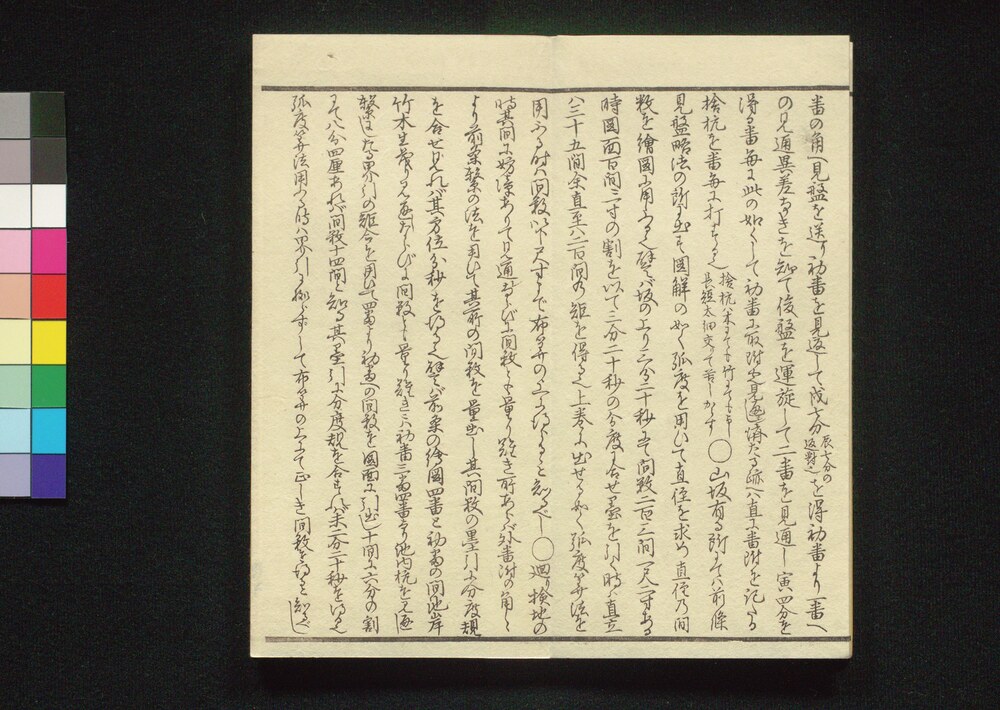 番の角へ見盤を送り初番を見返して戌七分辰七分の返対也を得初番より一番へ
の見通異差なきを知て後盤を運旋して二番を見通し寅四分を
得る番毎に此の如くして初番に取附や見通済たる跡へ直に番附を記したる
捨杭を番毎に打もの也捨杭ハ木にても竹にてもよし長短太細交りて苦しからす〇山坂有る所にてハ前條
見盤略法の所も出す図解の如く弧度を用いて直径を求め直径乃間
数を絵図に用ふる也譬バ坂の上り三分二十秒にて間数二百三間一尺二寸ある
時図面百間三寸の割を以て三分二十秒の分度に合せ墨を引く時ハ直立
八三十五間余直至六二百間の矩を得る也上巻に出せる如く弧度算法を
用ふる時ハ間数以下尺寸まで布算の上に得ると知るべし〇廻り検地の
時其間に妨障ありて見通ならびに間数とも量り難き所あらバ外番附の角
より前条繋の法を用いて其所の間数を量出し其間数の墨引に分度規
を合せ見れバ其方位分秒を得る也譬バ前条の絵図四番と初番の間池岸
竹木生茂り見通ならびに間数も量り難きハ初番三番四番より池内杭を見通
繋ぎたる界引の矩合を用いて四番より初番への間数を図面に引出し十間に六分の割
にて八分四厘あれバ間数十四間と知る其墨引に分度規を合すれバ未二分二十秒を得る也
弧度算法用ふる時ハ界引に及バずして布算の上にて正しき間数を得ると知るべし